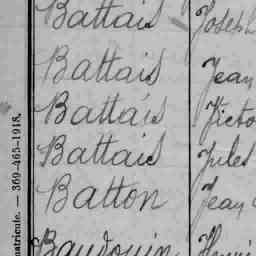 Battais Joseph
Battais Jean
Battais Victo
Battais Jules
Batton Jean
Baudouin Henri
matricule. — 369-465-1918.